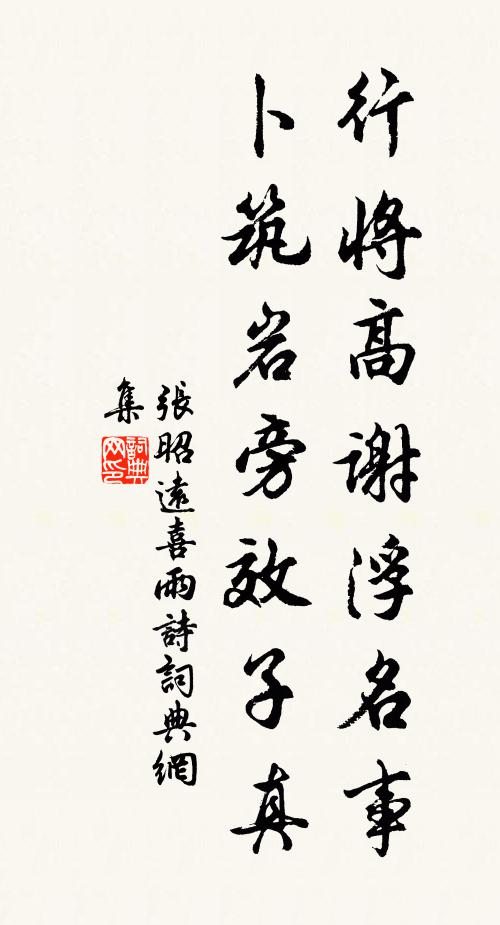 行將高謝浮名事
卜筑岩旁效子真
張昭遠喜雨詩詞典網
集
詞典
网印